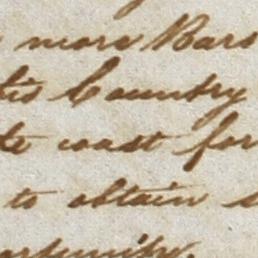 more Bars
his Country
coast for
to obtain